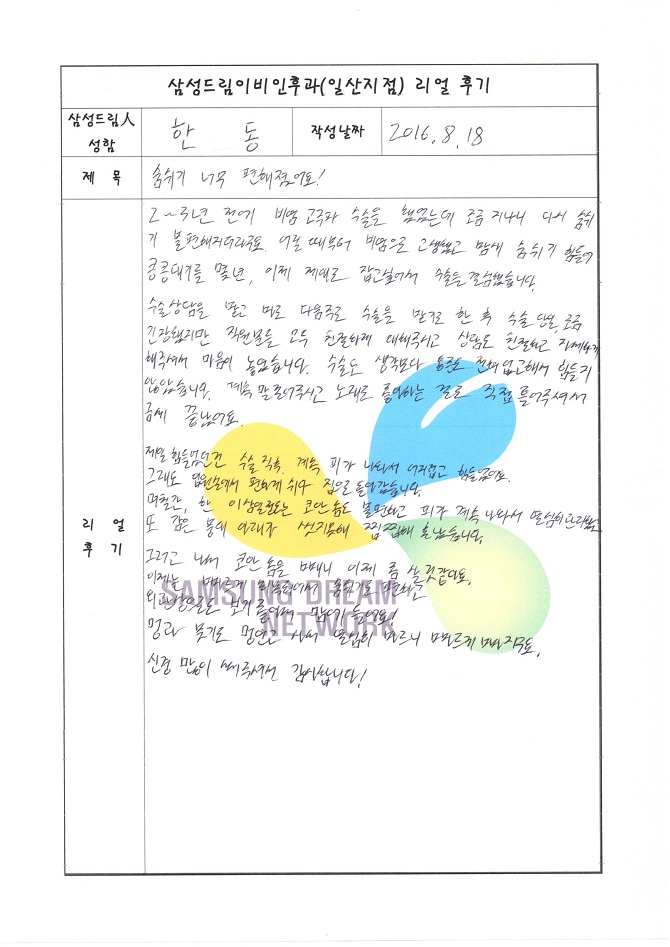 삼성드림이비인후과(일산지점) 리얼 후기
삼성드림人
성함
한 동
작성날짜
2016. 8. 18
제 목
숨쉬기 너무 편해졌어요!
2~3년 전에 비염 고주파 수술을 했었는데 조금 지나니 다시 숨쉬
기 불편해지더라구요. 어릴 때부터 비염으로 고생했고 밤에 숨쉬기 힘들어
킁킁대기를 몇년, 이제 제대로 잡고싶어서 수술을 결심했습니다.
수술상담을 받고 바로 다음주로 수술을 받기로 한 후 수술 당일, 조금
긴장했지만 직원분들 모두 친절하게 대해주시고 상담도 친절하고 자세하게
해주셔서 마음이 놓였습니다. 수술도 생각보다 통증도 전혀 없고해서 힘들지
않았습니다. 계속 말걸어주시고 노래도 좋아하는 걸로 직접 틀어주셔서
금세 끝났어요.
제일 힘들었던건 수술 직후. 계속 피가 나와서 어지럽고 힘들었어요.
그래도 입원실에서 편하게 쉬구 집으로 돌아갔습니다.
며칠간, 한 이삼일정도는 코안 솜도 불편하고 피가 계속 나와서 열심히
또 감은 붕대 아래가 씻지못해 찝찝해 혼났습니다.
그리고 나서 코안 솜을 빼내니 이제 좀 살 것같아요.
이제는
외관상으로 보기 좋아서 맘에 들어요!
멍과 붓기도 멍연고 사서 열심히 바르니 빠르게 빠지구요.
신경 많이 써주셔서 감사합니다!
리 얼
후 기
SAMSUNG DREAM
NETWORK